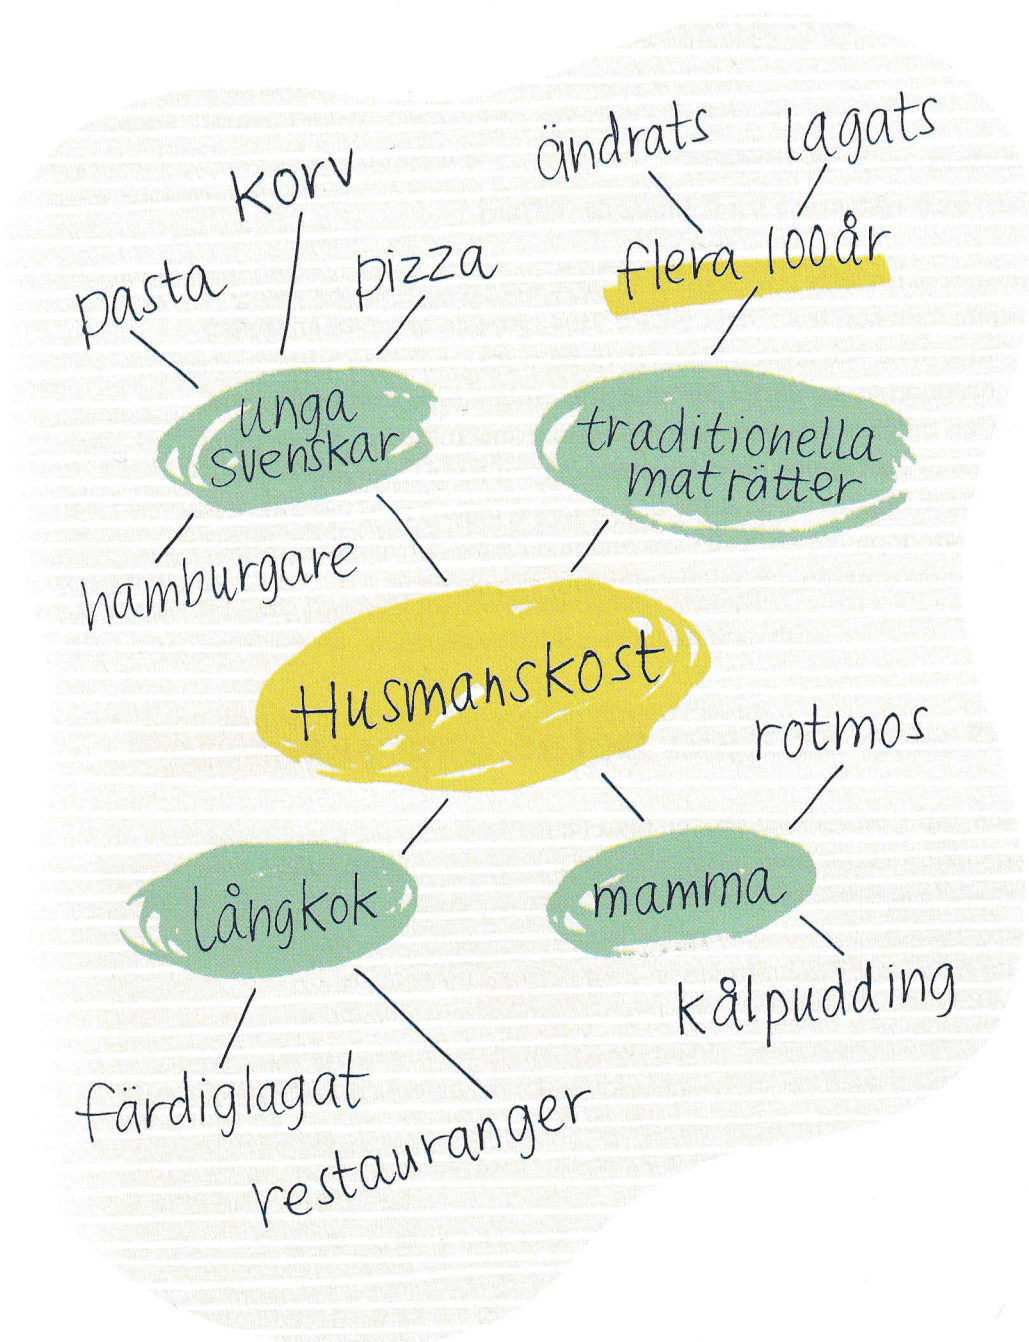 ändrats
lagats
korv
flera 100år
pasta
pizza
unga
svenskar
traditionella
maträtter
hamburgare
Husmanskost
rotmos
långkok
mamma
kålpudding
färdiglagat
restauranger